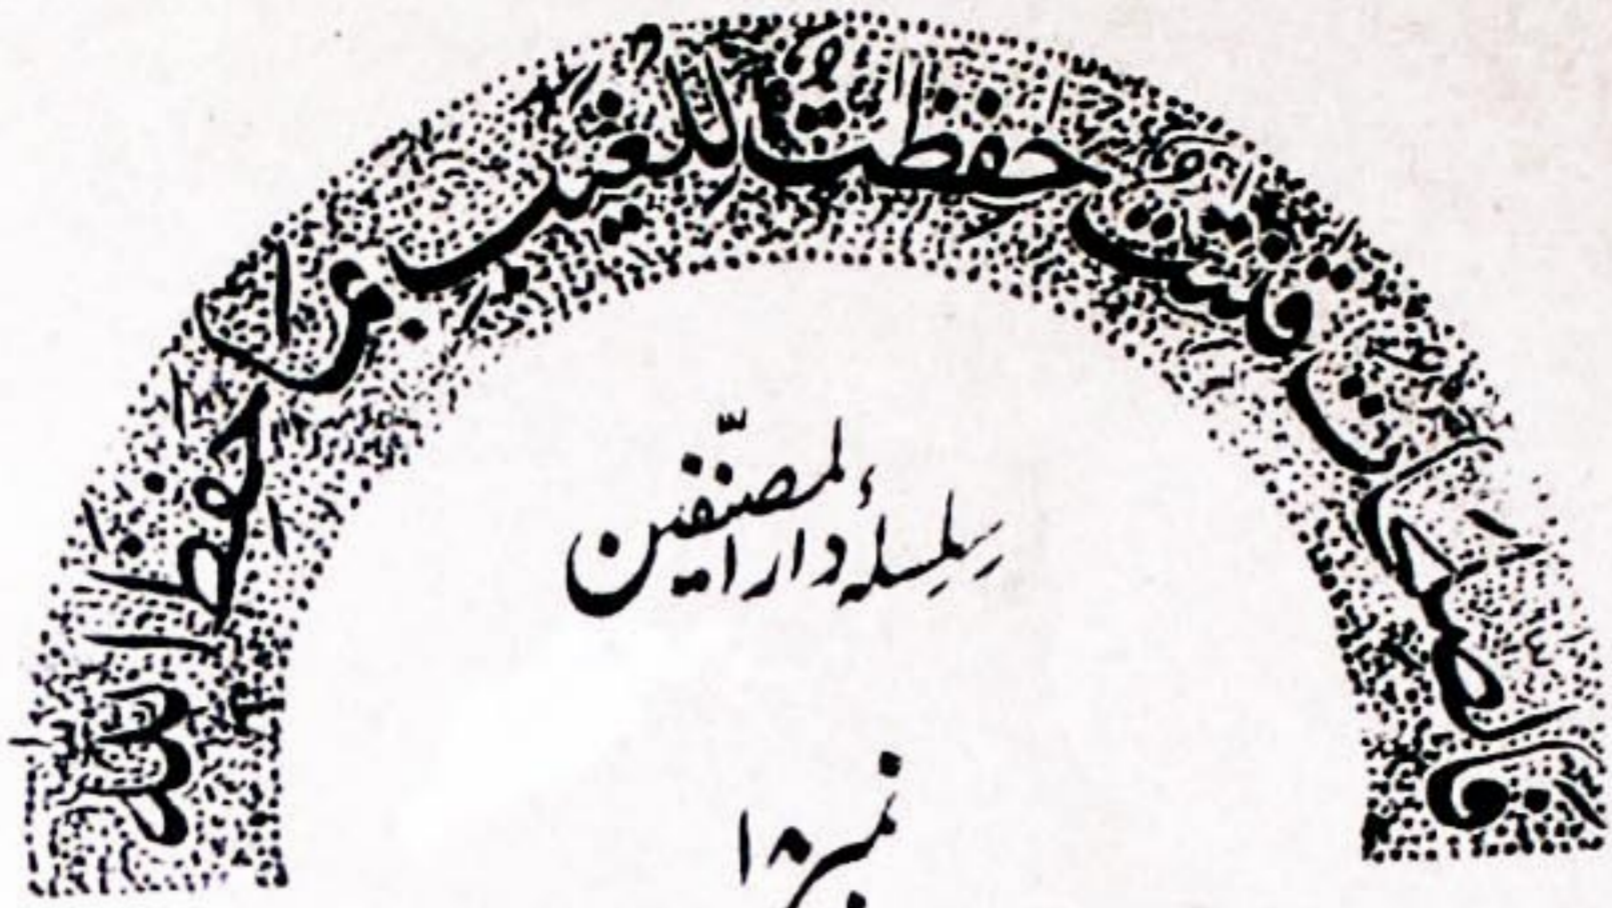 فالصلحت قنتت حفظت للغيب بما حفظ الله
سلسلۂ دار المصنّفین
نمبر ۱۸